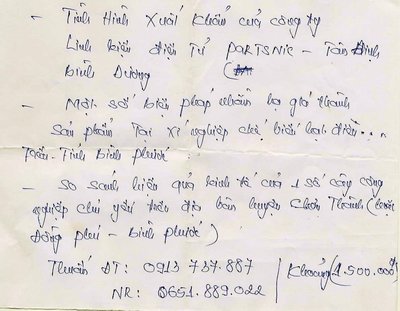 - Tình Hình Xuất Khẩu của công ty
Linh kiện điện Tử PARTSNIC - Tân Định
Bình Dương (
- Một số biện pháp nhằm hạ giá thành
sản phẩm Tại xí nghiệp chế biến hạt điều...
Tỉnh Bình phước.
- so sánh hiệu quả kinh tế của 1 số cây công
nghiệp chủ yếu trên địa bàn huyện Chơn Thành (hoặc
Đồng phú - Bình phước)
Thuấn ĐT: 0913 737.887 / Khoảng (1.500.000đ)
NR: 0651.889.022